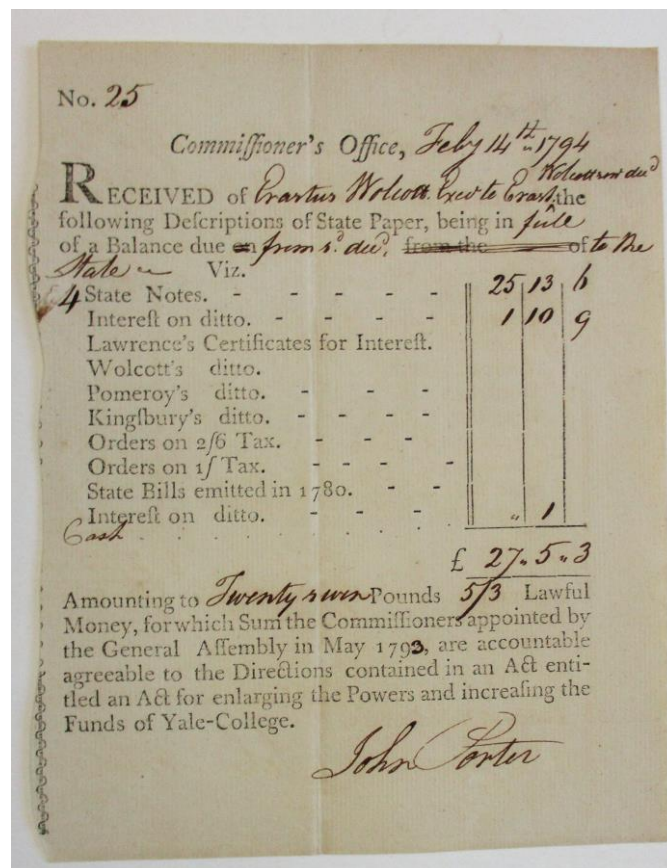 No. 25
Commiſſioner's Office, Feby 14th 1794
Wolcott dec'd
RECEIVED of Erastus Wolcott Exec to Erast. the
following Deſcriptions of State Paper, being in full
of a Balance due on from sd. decd. from the of to the
State Viz.
4 State Notes. - - - - - 25 13 6
Intereſt on ditto. - - - - - 1 10 9
Lawrence's Certificates for Intereſt.
Wolcott's ditto.
Pomeroy's ditto. - - - -
Kingſbury's ditto. - - - -
Orders on 2ſ6 Tax. - - - -
Orders on 1ſ Tax. - - - -
State Bills emitted in 1780. - -
Intereſt on ditto. - - - - " 1
Cash . . . . . .
£ 27 " 5 " 3
Amounting to Twenty seven Pounds 5/3 Lawful
Money, for which Sum the Commiſſioners appointed by
the General Aſſembly in May 1793, are accountable
agreeable to the Directions contained in an Act enti-
tled an Act for enlarging the Powers and increaſing the
Funds of Yale-College.
John Porter